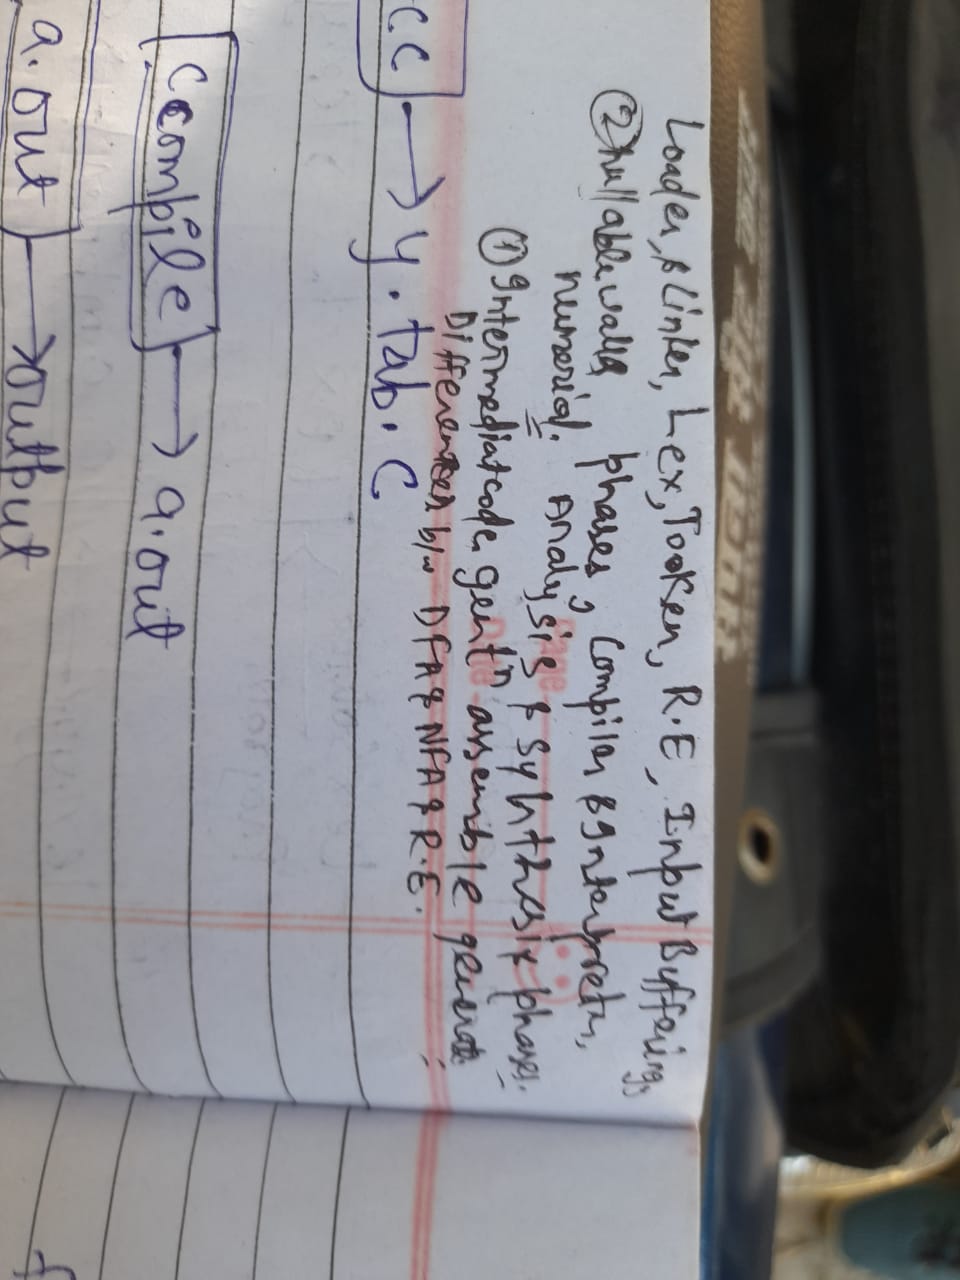 Loader, & Linker, Lex, Tooken, R.E, Input Buffering,
② nullable wala phases, Compiler & Interpreter,
numerical. Analysis & Synthesis phases.
① Intermediat code gentn assemble generate
Differences b/w DFA & NFA & R.E.
CC → y.tab.c
Compile → a.out
a.out → output